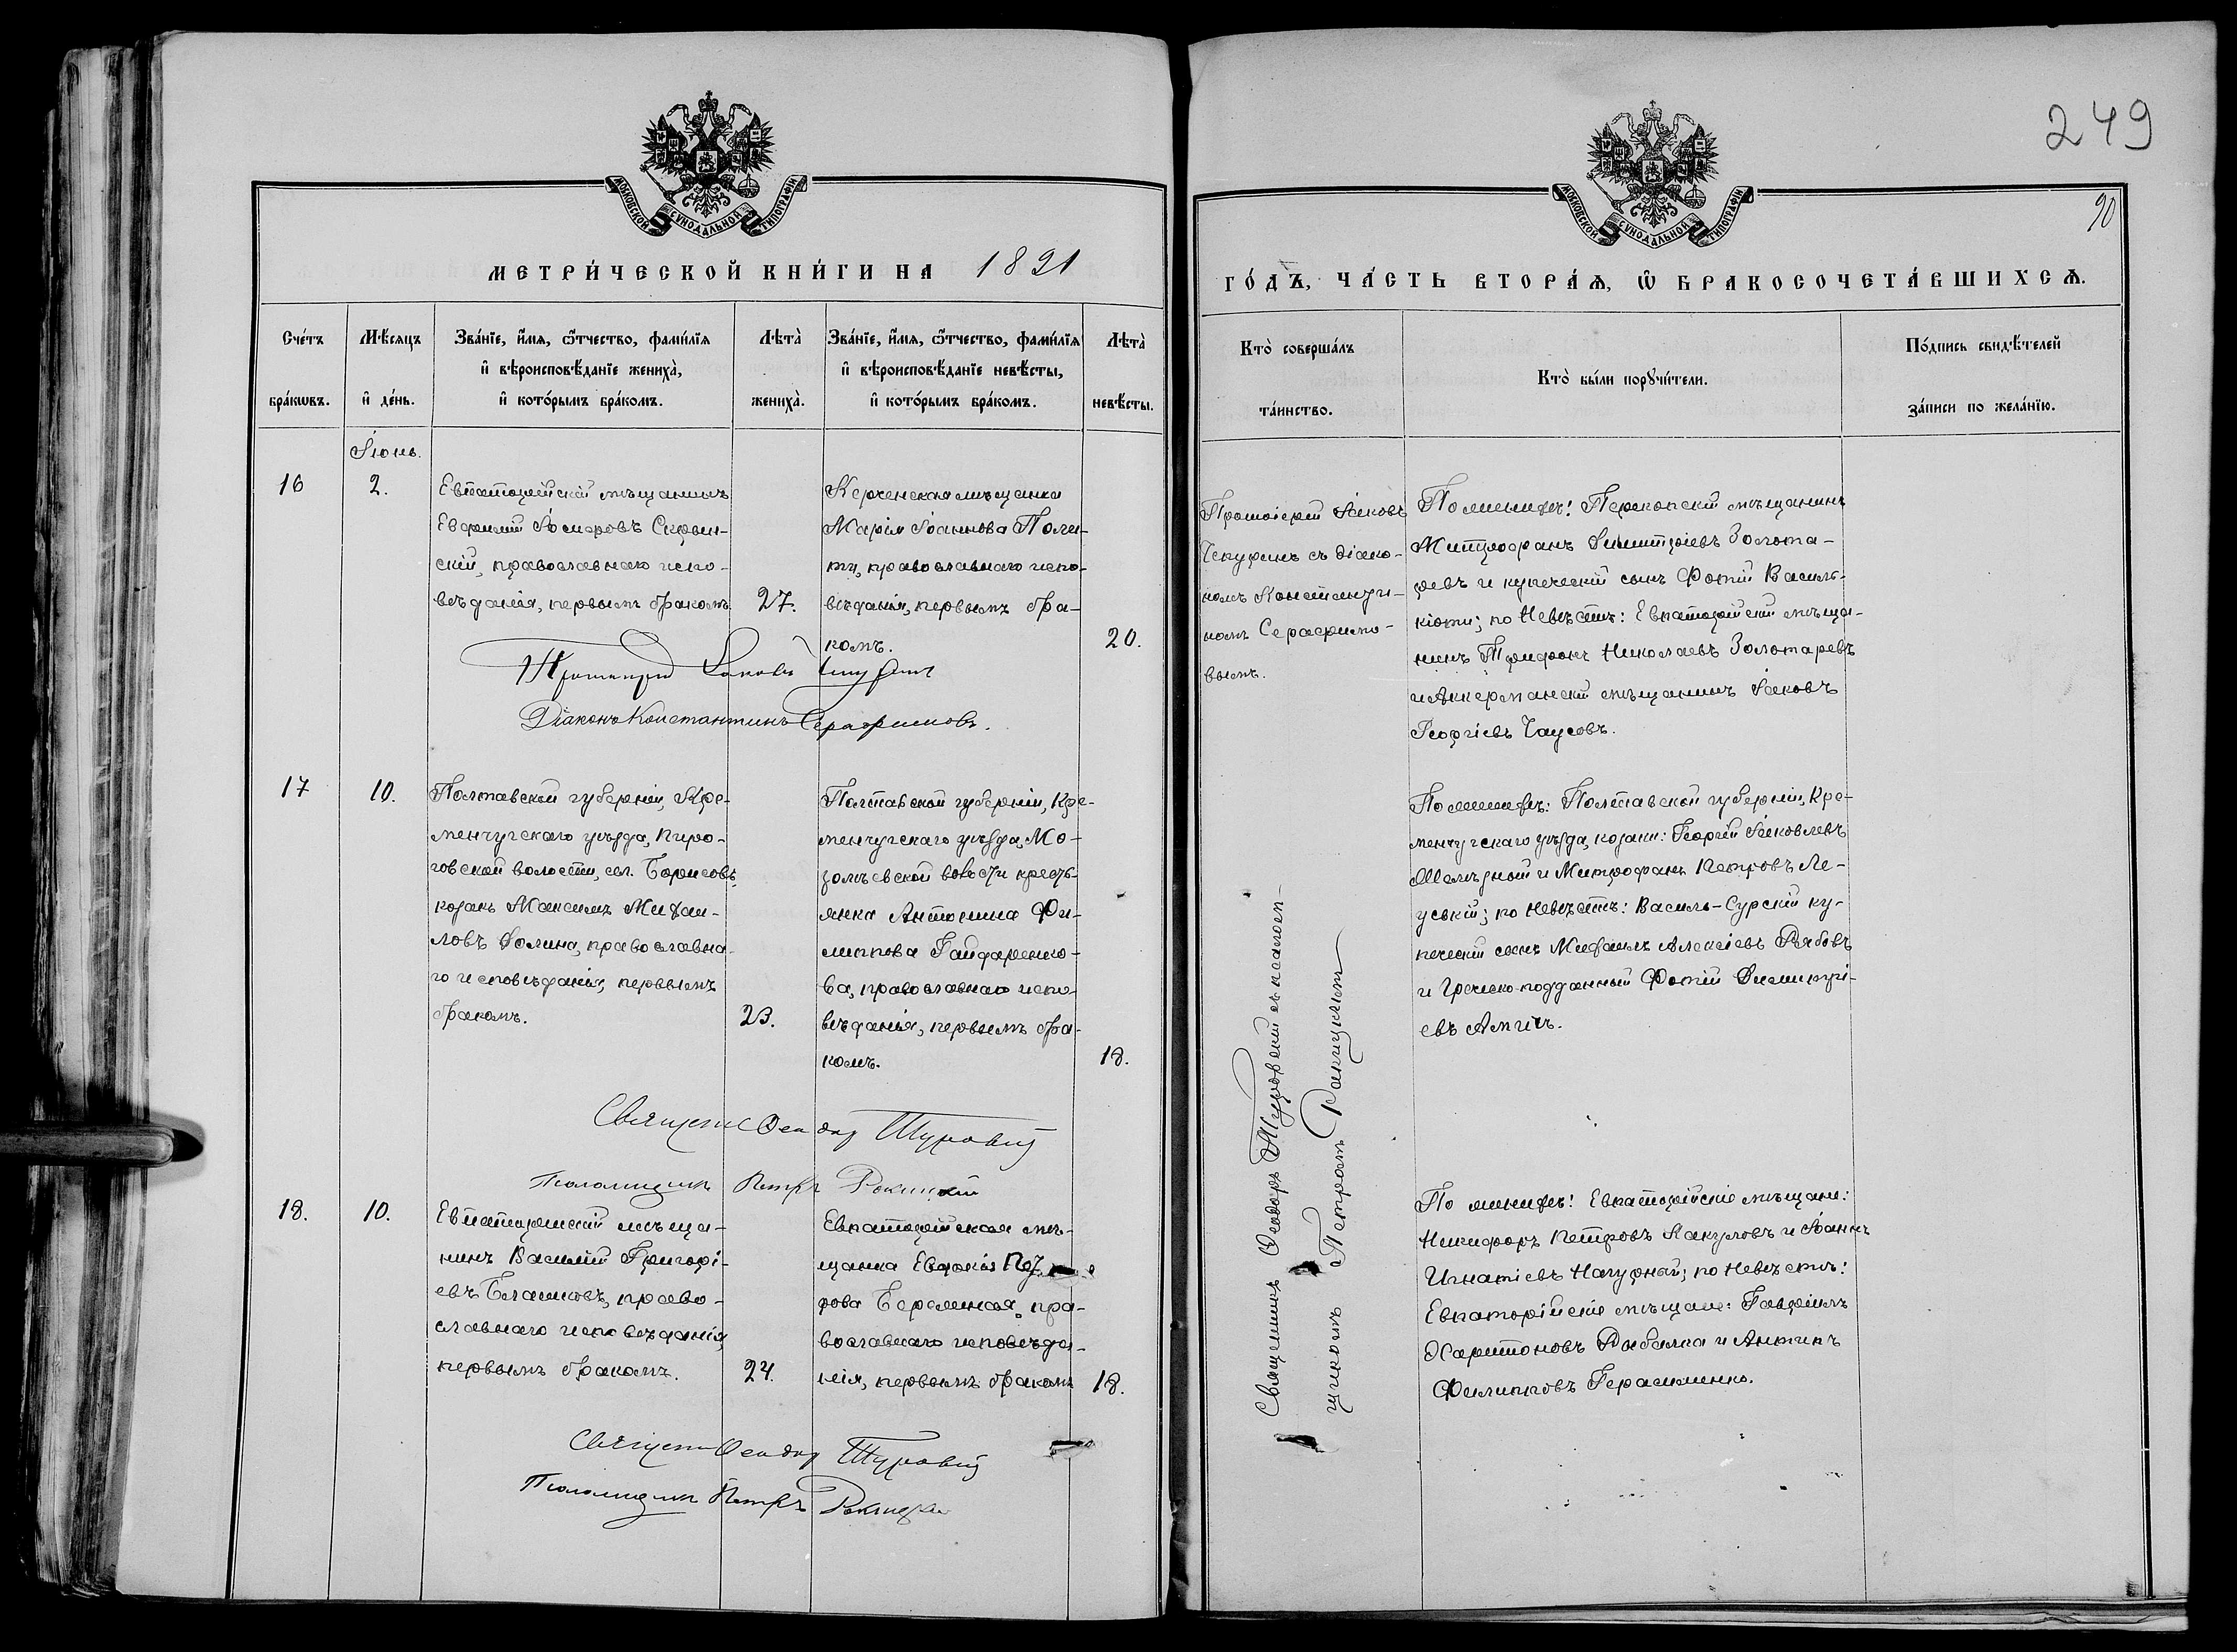 249
90
МОСКОВСКОЙ СѴНОДАЛЬНОЙ ТИПОГРАФІИ
МОСКОВСКОЙ СѴНОДАЛЬНОЙ ТИПОГРАФІИ
МЕТРИ́ЧЕСКОЙ КНИ́ГИ НА 1891
ГО́ДЪ, ЧА́СТЬ ВТОРА́Ѧ, Ѡ БРАКОСОЧЕТА́ВШИХСѦ.
Сче́тъ бра́кѡвъ.
Мѣ́сяцъ и҆ де́нь.
Зва́нїе, и҆́мя, ѻ҆́тчество, фами́лїя
и҆ вѣроисповѣ́данїе жениха̀,
и҆ кото́рымъ бра́комъ.
Лѣта̀ жениха̀.
Зва́нїе, и҆́мя, ѻ҆́тчество, фами́лїя
и҆ вѣроисповѣ́данїе невѣ́сты,
и҆ кото́рымъ бра́комъ.
Лѣта̀ невѣ́сты.
Кто̀ соверша́лъ
та́инство.
Кто̀ бы́ли порꙋчи́тели.
По́дпись свидѣ́телей
за́писи по жела́нїю.
Іюнь.
16
2.
Евпаторійскій мѣщанинъ
Евфимій
скій, православнаго испо-
вѣданія, первымъ бракомъ
27.
Керченская мѣщанка
Марія Іоаннова Поли-
ти, православнаго испо-
вѣданія, первымъ бра-
комъ.
20.
Протоіерей Іаковъ
Чепуринъ съ діако-
номъ Константи-
номъ Серафимо-
вымъ.
По женихѣ: Перекопскій мѣщанинъ
Митрофанъ Димитріевъ Золота-
ревъ и купеческій сынъ Фотій Василь-
кіоти; по невѣстѣ: Евпаторійскій мѣща-
нинъ Трифонъ Николаевъ Золотаревъ
и Аккерманскій мѣщанинъ Іаковъ
Георгіевъ Чаусовъ.
Протоіерей Іаковъ Чепуринъ
Діаконъ Константинъ Серафимовъ.
17
10.
Полтавской губерніи, Кре-
менчугскаго уѣзда, Пиро-
говской волости, сел. Борисовъ,
козакъ Максимъ Михаи-
ловъ Долина, православна-
го исповѣданія, первымъ
бракомъ.
23.
Полтавской губерніи, Кре-
менчугскаго уѣзда, Мо-
золѣевской волости кресть-
янка Антонина Фи-
липпова Гайдаренко-
ва, православнаго испо-
вѣданія, первымъ бра-
комъ.
18.
Священникъ Ѳеодоръ Туровскій съ псаломщикомъ Петромъ Ракицкимъ
По женихѣ: Полтавской губерніи, Кре-
менчугскаго уѣзда, козаки: Георгій Яковлевъ
и Митрофанъ Петровъ Ле-
уській; по невѣстѣ: Василь-Сурскій ку-
печескій сынъ Михаилъ Алексіевъ Рябовъ
и Греческо-подданный Фотій Димитрі-
евъ
Священ Ѳеодор Туровскій
Псаломщикъ Петръ Ракицкій
18.
10.
Евпаторійскій мѣща-
нинъ Василій Григорі-
евъ Блашковъ, право-
славнаго исповѣданія,
первымъ бракомъ.
24.
Евпаторійская мѣ-
щанка Евдокія
рова пра-
вославнаго исповѣда-
нія, первымъ бракомъ
18.
По женихѣ: Евпаторійскіе мѣщане:
Никифоръ Петровъ Какуловъ и Іоаннъ
Игнатіевъ Нагурный; по невѣстѣ:
Евпаторійскіе мѣщане: Гавріилъ
Харитоновъ Рыбалка и Антипъ
Филипповъ Герасименко.
Священ Ѳеодор Туровскій
Псаломщикъ Петръ Ракицкій